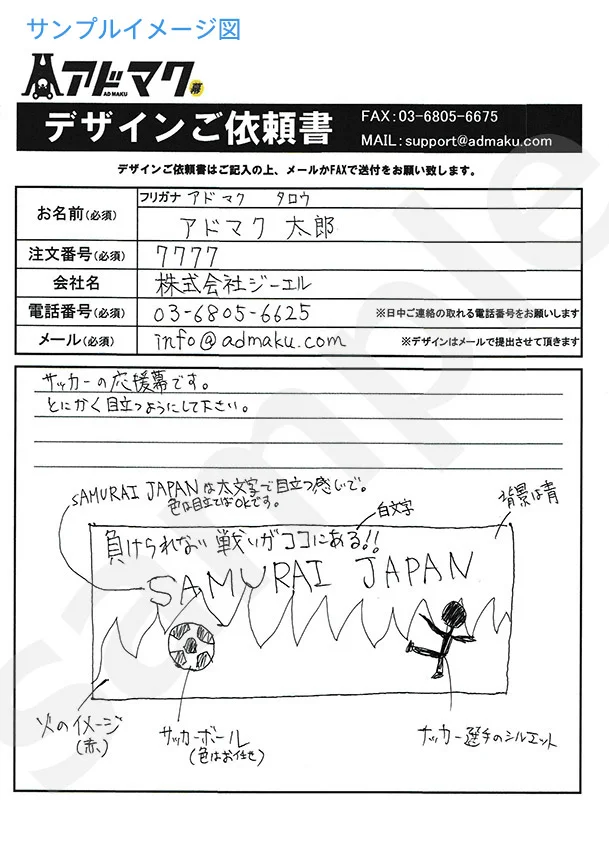 サンプルイメージ図
アドマク幕
AD MAKU
デザインご依頼書
FAX:03-6805-6675
MAIL:support@admaku.com
デザインご依頼書はご記入の上、メールかFAXで送付をお願い致します。
お名前(必須)
フリガナ アドマク タロウ
アドマク 太郎
注文番号(必須) 7777
会社名 株式会社ジーエル
電話番号(必須) 03-6805-6625 ※日中ご連絡の取れる電話番号をお願いします
メール(必須) info@admaku.com ※デザインはメールで提出させて頂きます
サッカーの応援幕です。
とにかく目立つようにして下さい。
SAMURAI JAPANは太文字で目立つ感じで。
色は目立てばOKです。
白文字
背景は青
負けられない戦いがココにある!!
SAMURAI JAPAN
火のイメージ
(赤)
サッカーボール
(色はお任せ)
サッカー選手のシルエット
sample